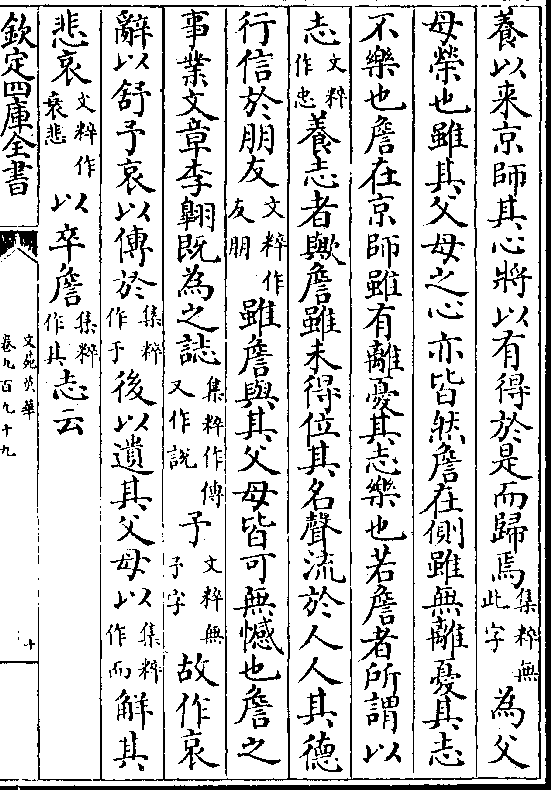 養以来京師其心將以有得於是而歸焉集粹無此字為父
母榮也雖其父母之心亦皆然詹在側雖無離憂其志
不樂也詹在京師雖有離憂其志樂也若詹者所謂以
志文粹作忠養志者歟詹雖未得位其名聲流於人人其德
行信於朋友文粹作友朋雖詹與其父母皆可無憾也詹之
事業文章李翶既為之誌集粹作傳又作説予文粹無予字故作哀
辭以舒予哀以傳於集粹作于後以遺其父母以集粹作而解其
悲哀文粹作哀悲以卒詹集粹作其志云
欽定四庫全書
文苑英華
卷九百九十九
十